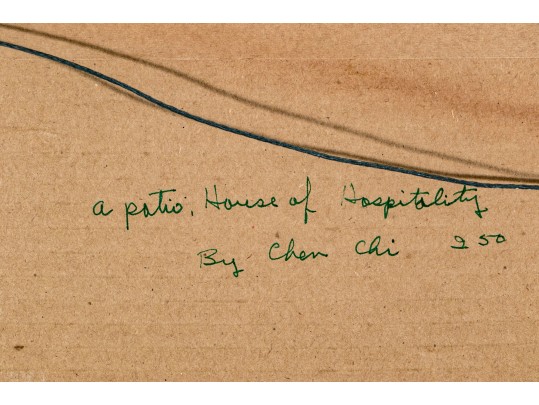 a patio, House of Hospitality
By Chen Chi 250